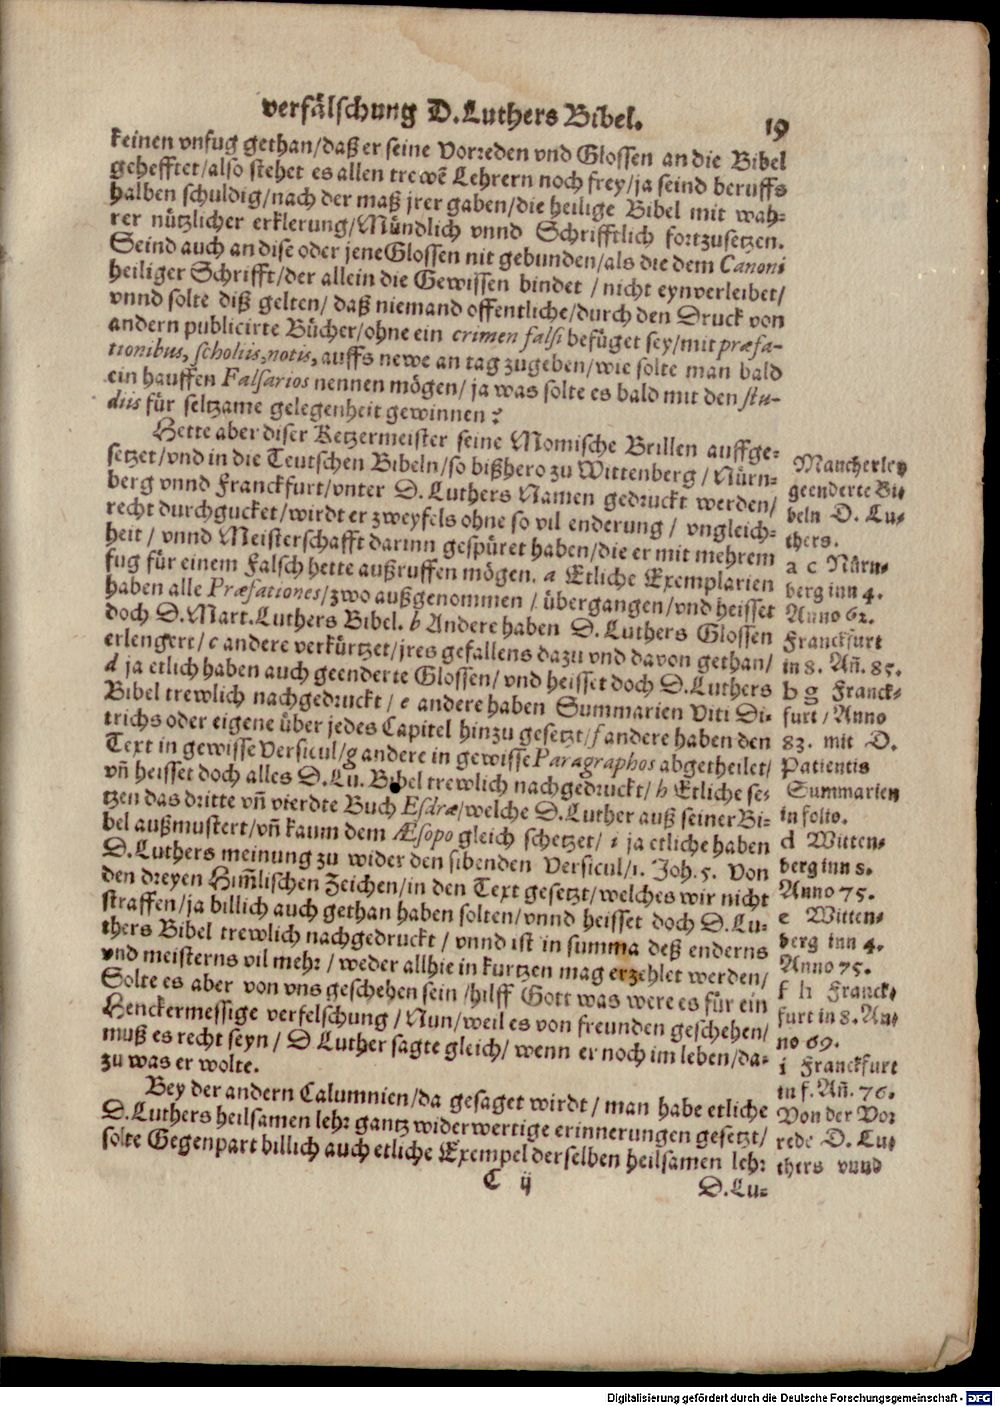 verfälschung D. Luthers Bibel. 19
keinen vnfug gethan/daß er seine Vorreden vnd Glossen an die Bibel
gehefftet/also stehet es allen trewē Lehrern noch frey/ja seind beruffs
halben schuldig/nach der maß jrer gaben/die heilige Bibel mit wah-
rer nützlicher erklerung/Mündlich vnnd Schrifftlich fortzusetzen.
Seind auch an dise oder jene Glossen nit gebunden/als die dem Canoni
heiliger Schrifft/der allein die Gewissen bindet / nicht eynverleibet/
vnnd solte diß gelten/ daß niemand offentliche/durch den Druck von
andern publicirte Bücher/ohne ein crimen falsi befüget sey/mit præfa-
tionibus, scholiis, notis, auffs newe an tag zugeben/wie solte man bald
ein hauffen Falsarios nennen mögen/ ja was solte es bald mit den stu-
diis für seltzame gelegenheit gewinnen?
Hette aber diser Ketzermeister seine Momische Brillen auffge-
setzet/vnd in die Teutschen Bibeln/so bißhero zu Wittenberg / Nürn-
berg vnnd Franckfurt/vnter D. Luthers Namen gedruckt werden/
recht durchgucket/wirdt er zweyfels ohne so vil enderung / vngleich-
heit / vnnd Meisterschafft darinn gespüret haben/die er mit mehrem
fug für einem Falsch hette außruffen mögen. a Etliche Exemplarien
haben alle Præfationes/zwo außgenommen / übergangen/vnd heisset
doch D. Mart. Luthers Bibel. b Andere haben D. Luthers Glossen
erlengert/ c andere verkürtzet/jres gefallens dazu vnd davon gethan/
d ja etlich haben auch geenderte Glossen/ vnd heisset doch D. Luthers
Bibel trewlich nachgedruckt / e andere haben Summarien Viti Di-
trichs oder eigene über jedes Capitel hinzu gesetzt/ f andere haben den
Text in gewisse Versicul/ g andere in gewisse Paragraphos abgetheilet/
vñ heisset doch alles D. Lu. Bibel trewlich nachgedruckt/ h Etliche se-
tzen das dritte vñ vierdte Buch Esdræ/welche D. Luther auß seiner Bi-
bel außmustert/vñ kaum dem Æsopo gleich schetzet/ i ja etliche haben
D. Luthers meinung zu wider den sibenden Versicul/1. Joh. 5. Von
den dreyen Him̄lischen Zeichen/in den Text gesetzt/welches wir nicht
straffen/ja billich auch gethan haben solten/vnnd heisset doch D. Lu-
thers Bibel trewlich nachgedruckt / vnnd ist in summa deß enderns
vnd meisterns vil mehr / weder allhie in kurtzen mag erzehlet werden/
Solte es aber von vns geschehen sein /hilff Gott was were es für ein
Henckermessige verfelschung / Nun/weil es von freunden geschehen/
muß es recht seyn / D Luther sagte gleich/ wenn er noch im leben/da-
zu was er wolte.
Bey der andern Calumnien/da gesaget wirdt / man habe etliche
D. Luthers heilsamen lehr gantz widerwertige erinnerungen gesetzt/
solte Gegenpart billich auch etliche Exempel derselben heilsamen lehr
C ij D. Lu-
Mancherley
geenderte Bi-
beln D. Lu-
thers.
a c Nürn-
berg inn 4.
Anno 62.
Franckfurt
in 8. Añ. 85.
b g Franck-
furt / Anno
83. mit D.
Patientis
Summarien
in folio.
d Witten-
berg inn 8.
Anno 75.
e Witten-
berg inn 4.
Anno 75.
f h Franck-
furt in 8. An-
no 69.
i Franckfurt
in f. Añ. 76.
Von der Vor
rede D. Lu-
thers vnnd
Digitalisierung gefördert durch die Deutsche Forschungsgemeinschaft - DFG